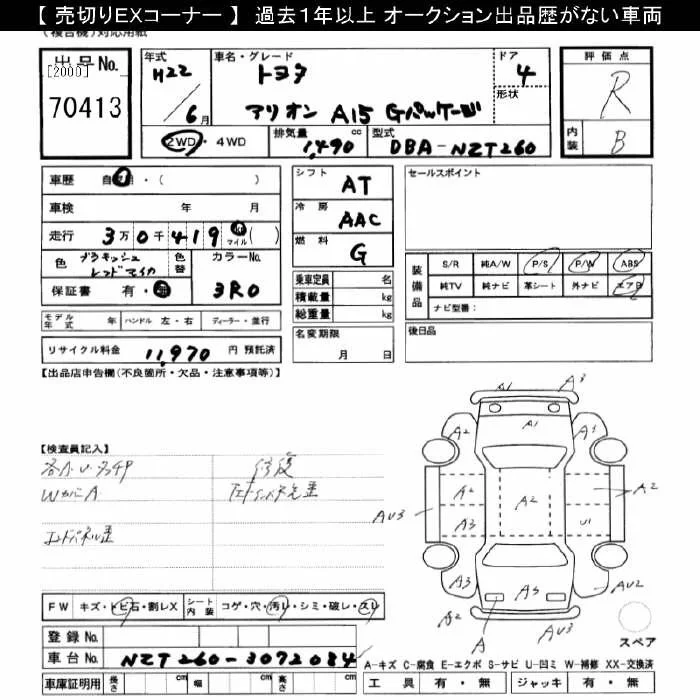 【 売切りEXコーナー 】 過去1年以上 オークション出品歴がない車両
(複合機)対応用紙
出品No.
[2000]
70413
年式 H22 / 6月
車名・グレード トヨタ
アリオン A15 Gパッケージ
ドア 4
形状
2WD・4WD
排気量 1,490 cc
型式 DBA-NZT260
評価点 R
内装 B
車歴 自家用・( )
車検 年 月
走行 3万0千419 km マイル ( )
色 ブラキッシュレッドマイカ
色替
カラーNo. 3R0
保証書 有・無
モデル年式 年 ハンドル 左・右 ディーラー・並行
リサイクル料金 11,970 円 預託済
シフト AT
冷房 AAC
燃料 G
乗車定員 名
積載量 kg
総重量 kg
名変期限
月 日
セールスポイント
装備品
S/R 純A/W P/S P/W ABS
純TV 純ナビ 革シート 外ナビ エアB
ナビ型番:
後日品
【出品店申告欄(不良箇所・欠品・注意事項等)】
【検査員記入】
各A・U・タッチP 修復
WカバーA
エンドパネル歪
FW キズ・トビ石・割レX シート内装 コゲ・穴・汚レ・シミ・破レ・スレ
登録No.
車台No. NZT260-3072084
車庫証明用 長さ cm 幅 cm 高さ cm
A1 A3
A2 A1 A1
A2 A2 A2
AU3 A3 U1
A3 A5 AU2
A2 A AU3
スペア
A-キズ C-腐食 E-エクボ S-サビ U-凹ミ W-補修 XX-交換済
工具 有・無 ジャッキ 有・無